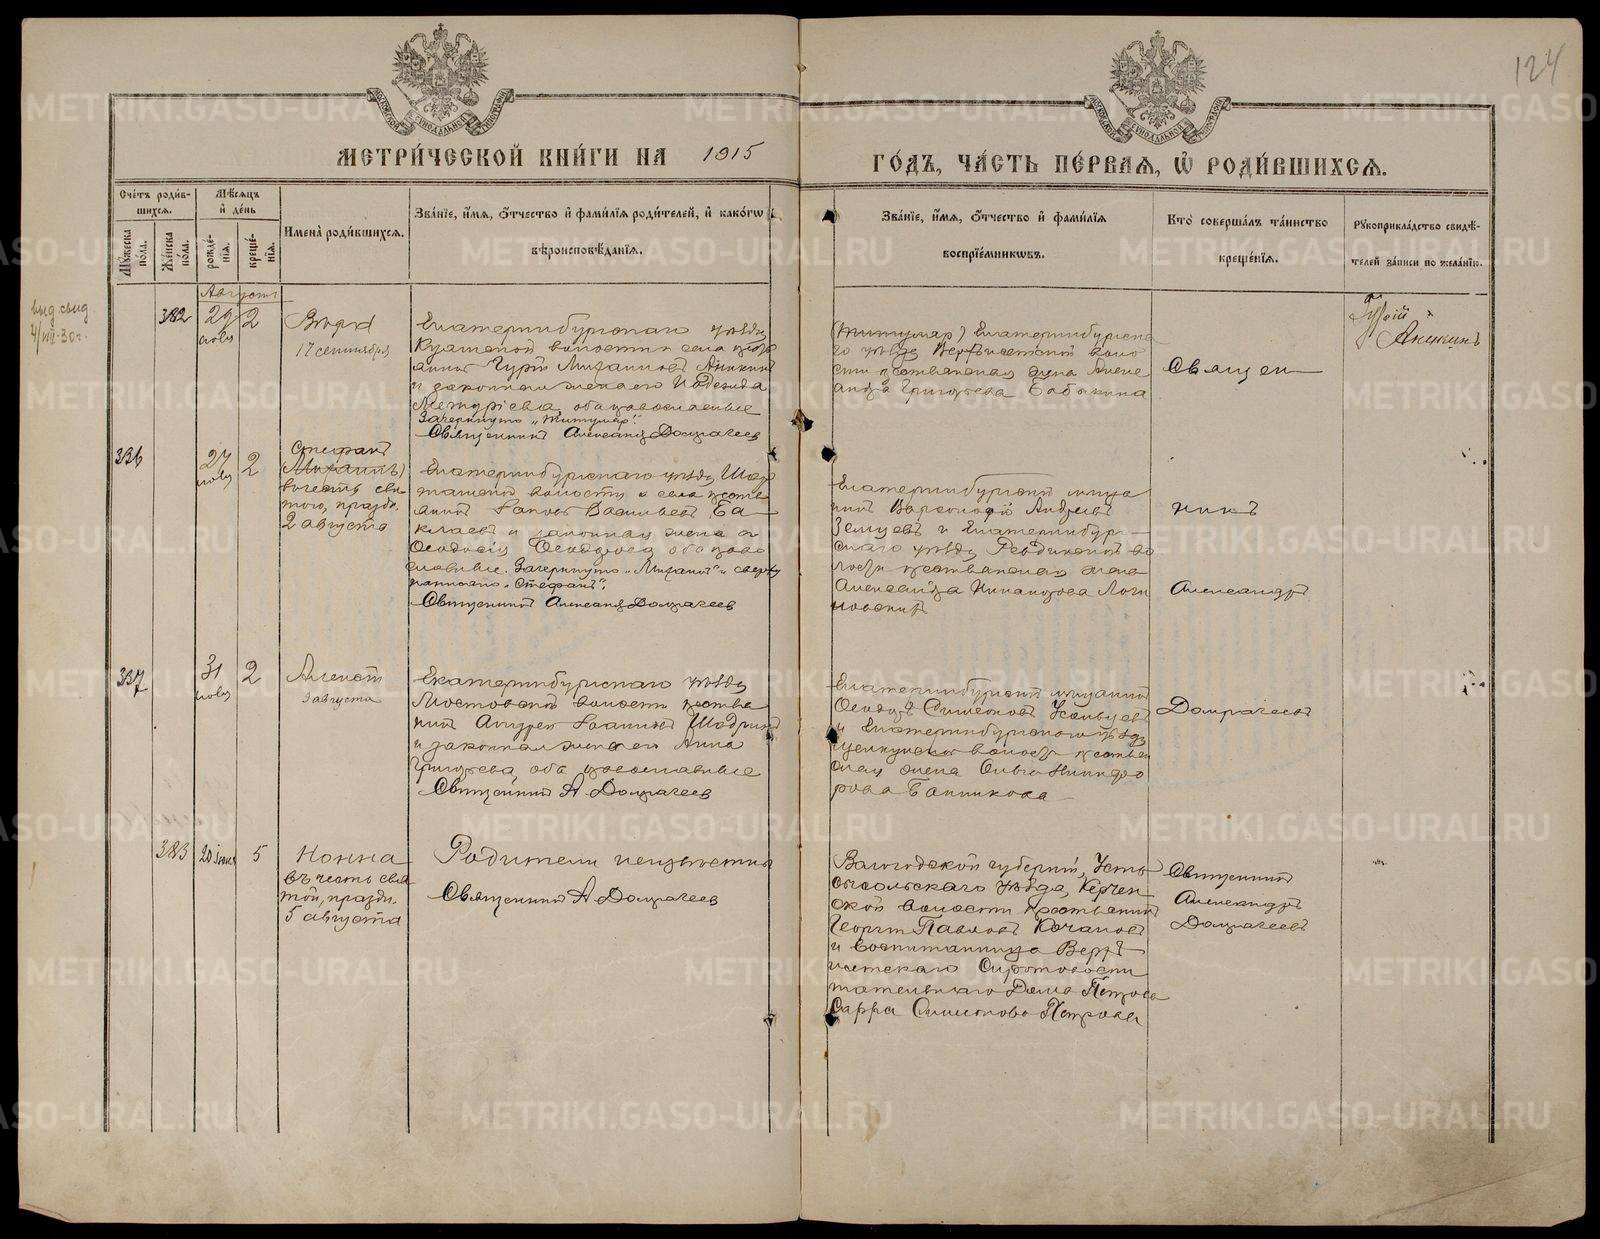 124
МЕТРИ́ЧЕСКОЙ КНИ́ГИ НА 1915
ГО́ДЪ, ЧА́СТЬ ПЕ́РВАЯ, Ѡ҆ РОДИ́ВШИХСЯ.
Сче́тъ роди́в-
шихся.
Мꙋ́жеска по́ла.
Же́нска по́ла.
Мѣ́сяцъ
и҆ де́нь
рожде́-
нїя.
креще́-
нїя.
И҆мена̀ роди́вшихся.
Зва́нїе, и҆́мя, ѻ҆́тчество и҆ фами́лїя роди́телей, и҆ како́гѡ
вѣроисповѣ́данїя.
Зва́нїе, и҆́мя, ѻ҆́тчество и҆ фами́лїя
воспрїе́мникѡвъ.
Кто̀ соверша́лъ та́инство
креще́нїя.
Рꙋкоприкла́дство свидѣ́-
телей за́писи по жела́нїю.
Августъ
выд. свид.
4/VII-30 г.
382
29
июля
2
Вѣра
17 сентября
Екатеринбургскаго уѣзда
Куяшской волости и села крестья
нинъ Гурій Михаиловъ Аникинъ
и законная жена его Надежда
обa православные
Зачеркнуто „Титуляр".
Священникъ Александръ Домрачеевъ
(Титуляр) Екатеринбургска
го уѣзда Верхъисетской воло
сти крестьянская жена Алекс
андра Григорьева Бабыкина
Священ
Гурій
Аникинъ
336
27
июля
2
Стефанъ
(Михаилъ)
въ честь свя-
того, праздн.
2 августа
Екатеринбургскаго уѣзда Шар
ташской волости и села крестья
нинъ Іаковъ Васильевъ Ба
клаевъ и законная жена его
Ѳеодосія Ѳеодорова оба право
славные. Зачеркнуто „Михаилъ" и сверху
написано „Стефанъ".
Священникъ Александръ Домрачеевъ
Екатеринбургскій мѣща
нинъ Варѳоломей Андреевъ
и Екатеринбург-
скаго уѣзда во
лости крестьянская жена
Александра Никандрова Логи
никъ
Александръ
337
31
июля
2
Алексѣй
9 августа
Екатеринбургскаго уѣзда
Мостовской волости крестья
нинъ Андрей Іоанновъ Шадринъ
и законная жена его Анна
Григорьева, оба православные
Священникъ А Домрачеевъ
Екатеринбургскій мѣщанинъ
Ѳеодоръ Симеоновъ Усольцевъ
и Екатеринбургскаго уѣзда
волости крестьян
ская жена Ольга Никифо
рова Банникова
Домрачеевъ
383
20 іюля
5
Нонна
въ честь свя
той, праздн.
5 августа
Родители неизвѣстны
Священникъ А Домрачеевъ
Вологодской губерніи, Усть
сысольскаго уѣзда, Керчем
ской волости крестьянинъ
Георгій Павловъ Качановъ
и воспитанница Верхъ-
исетскаго Сиротовоспи
тательнаго Дома Петрова
Сарра Симеонова Петрова
Священникъ
Александръ
Домрачеевъ